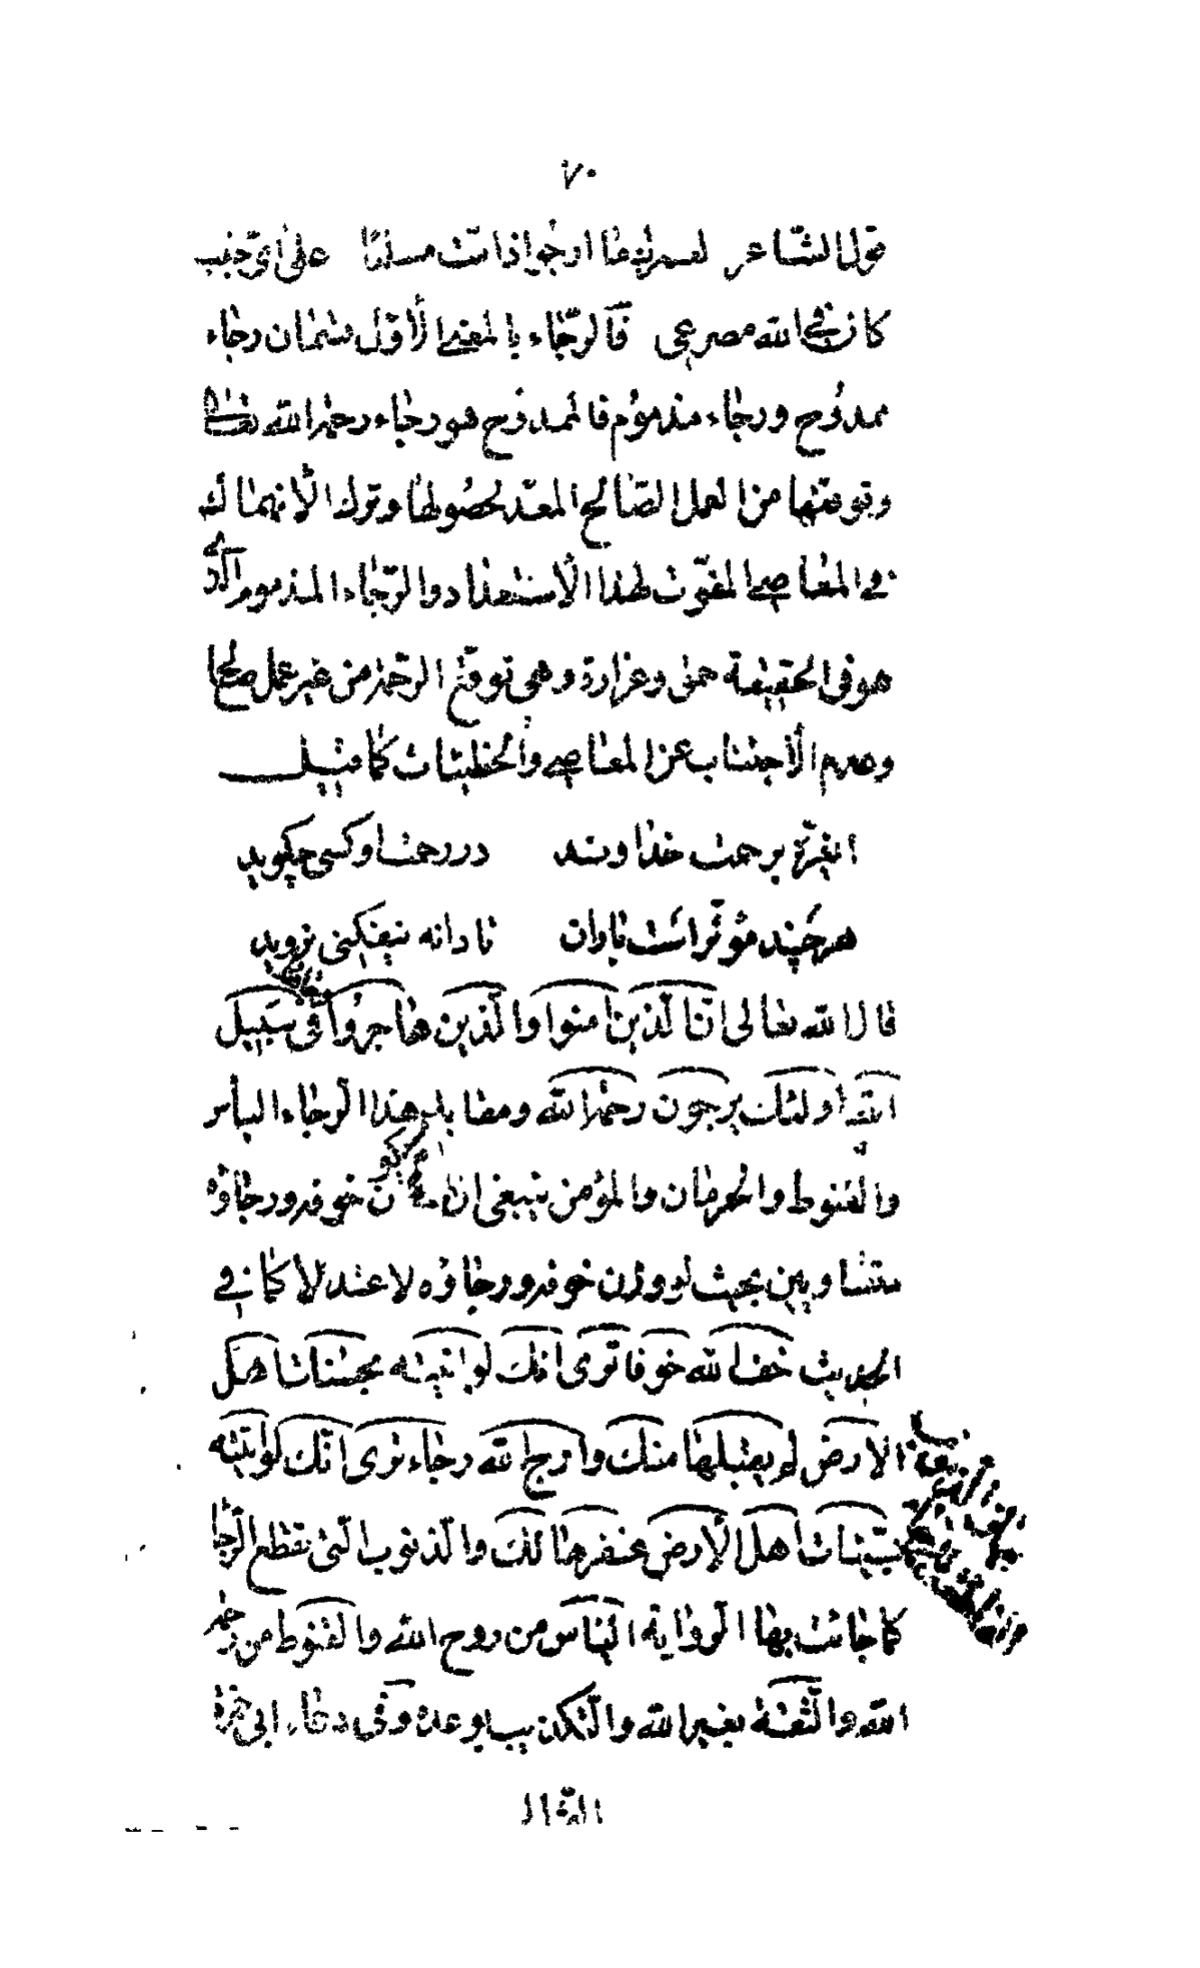 ٧٠
قول الشاعر لعمرك ما ارجو اذا متّ مسلمًا على اىّ جنب
كان فى الله مصرعى فالرّجاء بالمعنى الأوّل قسمان رجاء
ممدُوح ورجاء مذموم فالممدُوح هو رجاء رحمة الله تعالى
وتوقعها من العمل الصّالح المعدّ لحصُولها وترك الأنهماك
فى المعاصى المفوّت لهذا الأستعداد والرّجاء المذموم الّذى
هو فى الحقيقة حمق وغرارة وهى توقّع الرّحمة من غير عمل صالح
وعدم الأجتناب عن المعاصى والخطيئات كما قيل
ايغرّه برحمت خداوند در رحمت او كسى چگويد
هرچند مؤثّر است باران تا دانه نيفكنى نرويد
قال الله تعالى انّ الّذين امنوا والّذين هاجرُوا فى سَبيل
الله اولئك يرجون رحمة الله ومقابل هذا الرّجاء اليأس
والقنوط والحرمان والمؤمن ينبغى ان يكون خوفه ورجاؤه
متساويين بحيث لو وزن خوفه ورجاؤه لاعتدلا كما فى
الحديث خف الله خوفا ترى انك لو اتيته بحسنات اهل
الارض لم يقبلها منك وارج الله رجاء ترى انّك لو اتيته
بسيّئات اهل الأرض غفرها لك والذنوب الّتى تقطع الرّجا
كما جائت بها الرّواية اليأس من روح الله والقنوط من رحمة
الله والثّقة بغير الله والتّكذيب بوعده وفى دعاء ابى حمزة
الثمالى